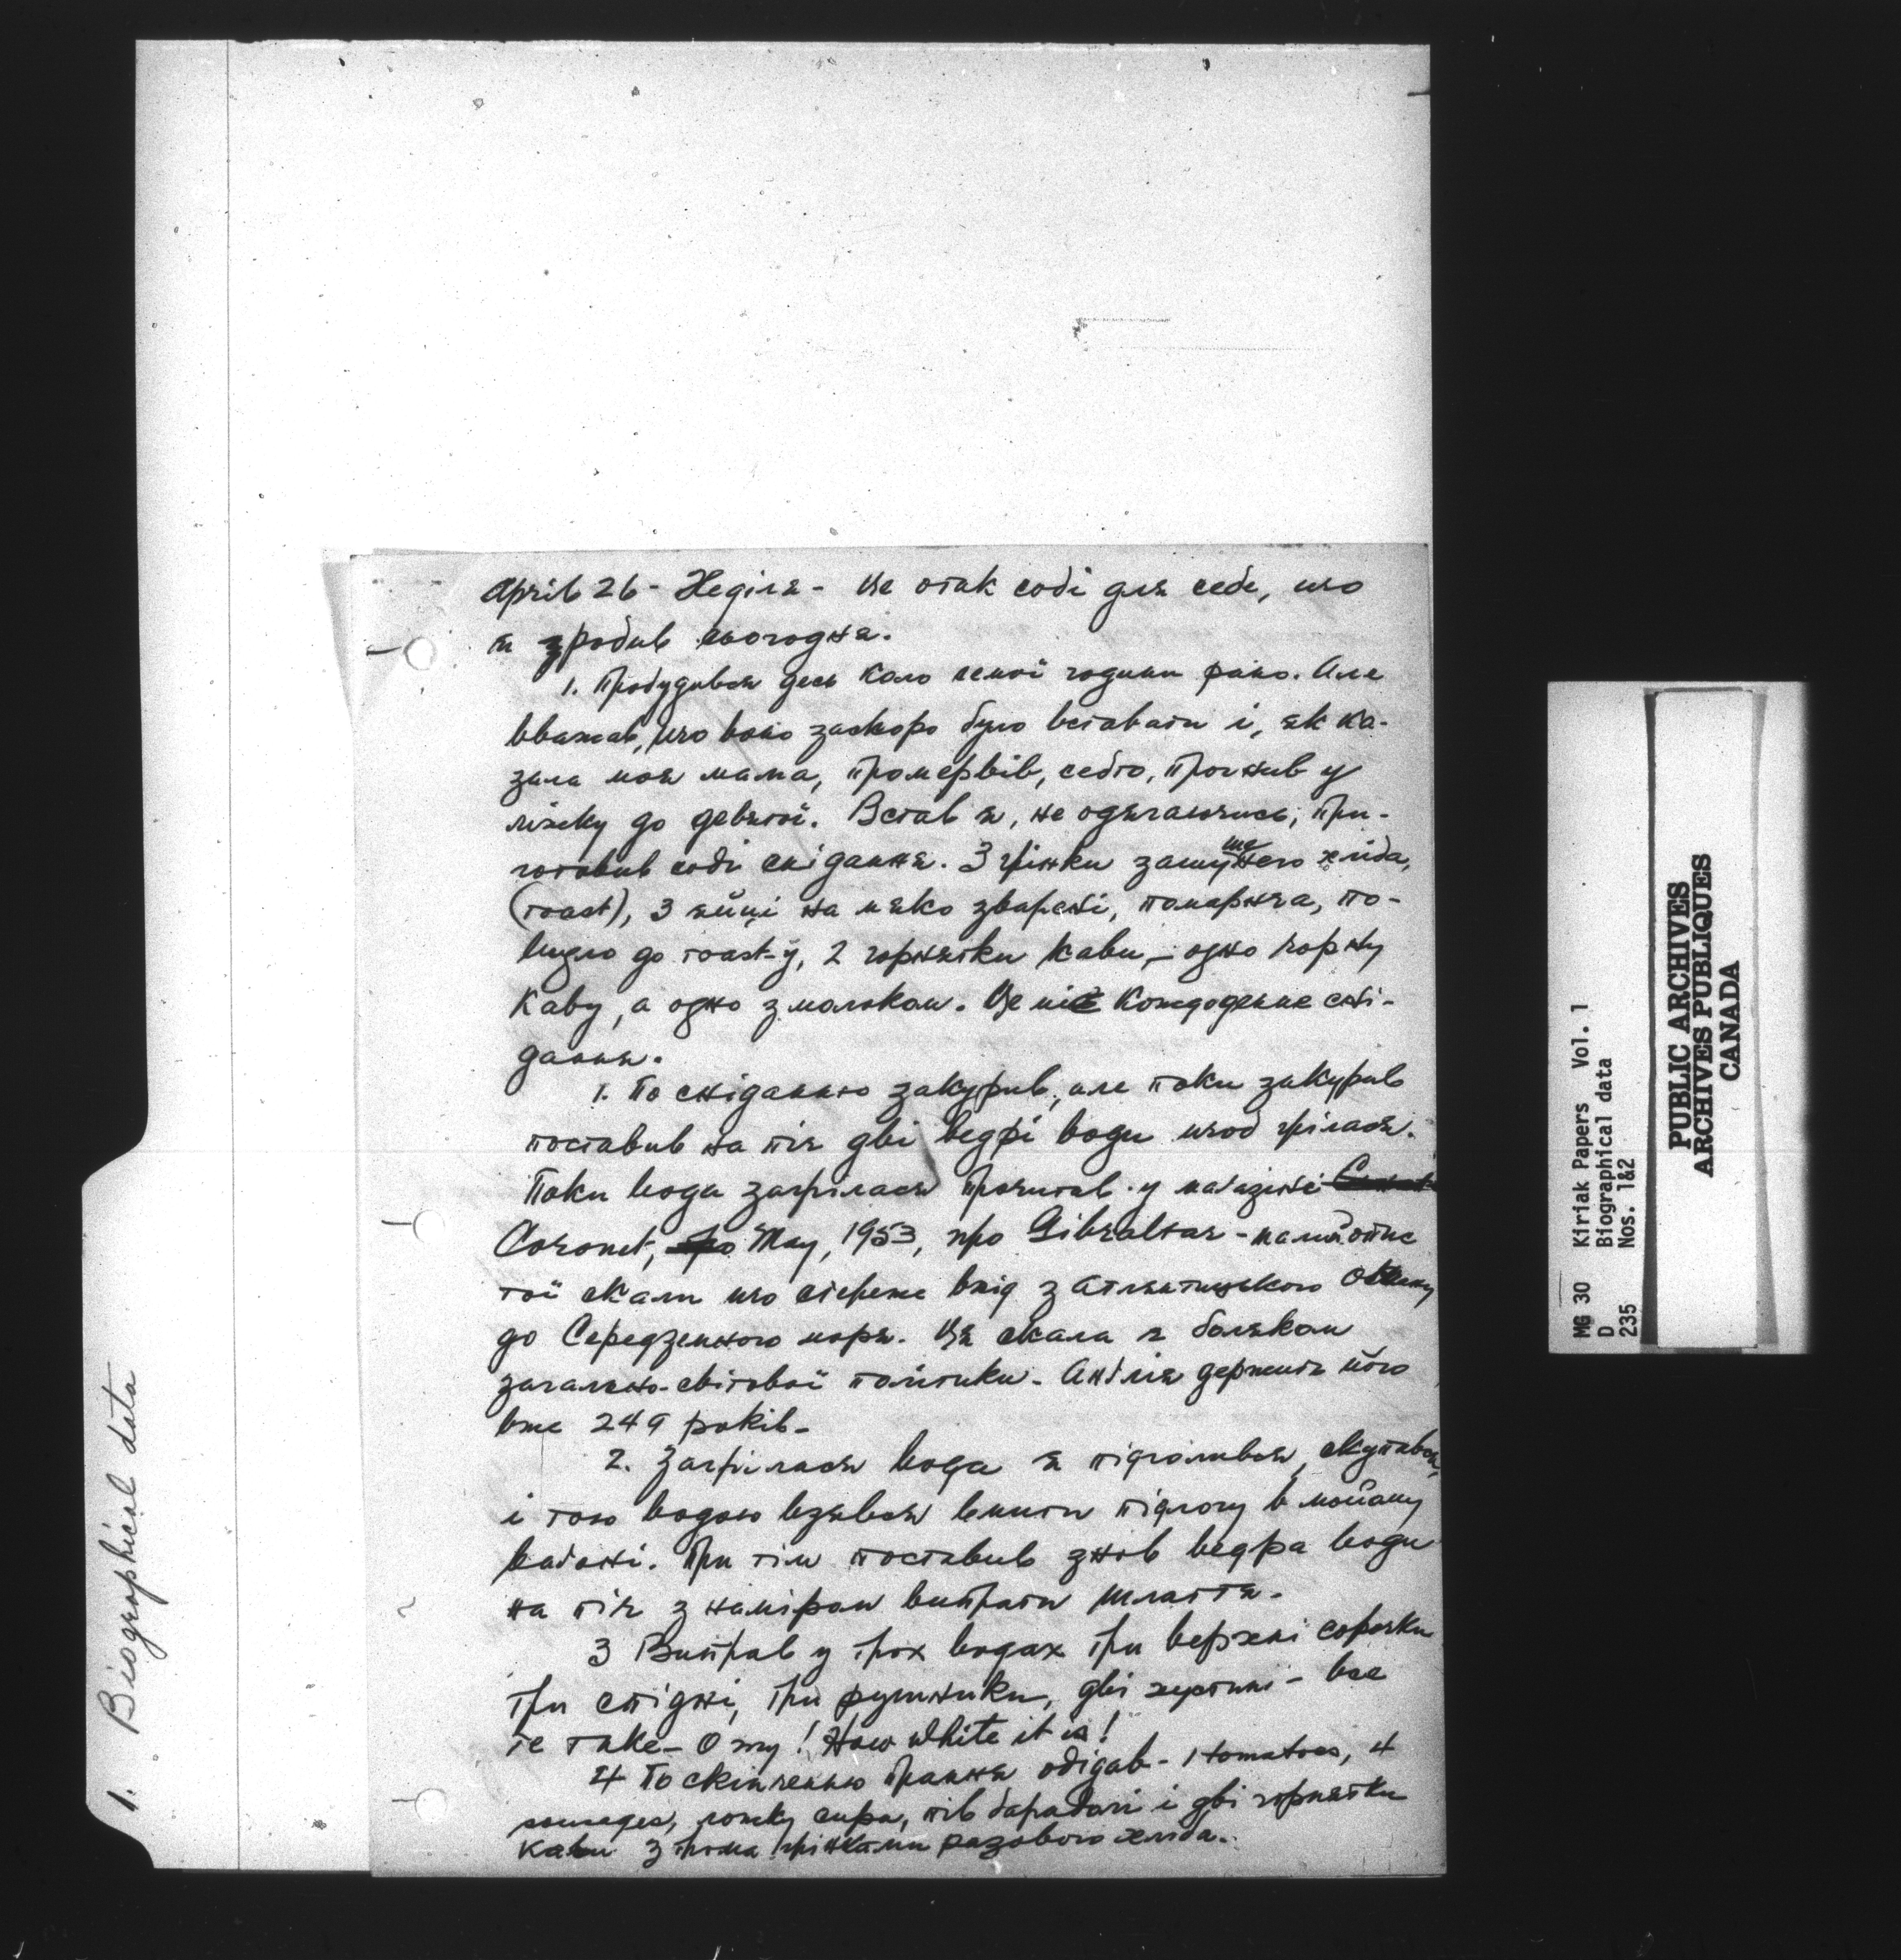 April 26 - Неділя - Це отак собі для себе, що
я зробив сьогодня.
1. Пробудився десь коло семої години рано. Але
вважав, що воно заскоро було вставати і, як ка-
зала моя мама, промервів, себто, прогнив у
ліжку до девятої. Встав я, не одягаючись, при-
готовив собі снідання. 3 грінки хліба,
(toast), 3 яйці на мяко зварені, помаранча, по-
видло до toast-у, 2 горнятки кави, - одно чорну
каву, а одно з молоком. Це моє кождоденне сні-
дання.
1. По сніданню закурив, але поки закурив
поставив на піч дві ведрі води щоб грілася.
Поки вода загрілася прочитав у маґазині
Coronet, May, 1953, про Gibraltar -
тої скали що стереже вхід з Атлянтицького Океану
до Середземного моря. Ця скала є боляком
загально-світової політики. Анґлія держить його
вже 249 років.
2. Загрілася вода я підголився, скупався,
і тою водою взявся вмити підлогу в мойому
ваґоні. При тім поставив знов ведра води
на піч з наміром випрати шлаття.
3 Виправ у трох водах три верхні сорочки
три спідні, три рушники, дві хустині - все
те таке - O my! How white it is!
4 По скінченню прання обідав - 1 tomatoes, 4
sausages, ложку сира, пів бараболі і дві горнятки
кави з трома грінками разового хліба.
1. Biographical data
MG 30 Kiriak Papers Vol. 1
D Biographical data
235 Nos. 1&2
PUBLIC ARCHIVES
ARCHIVES PUBLIQUES
CANADA